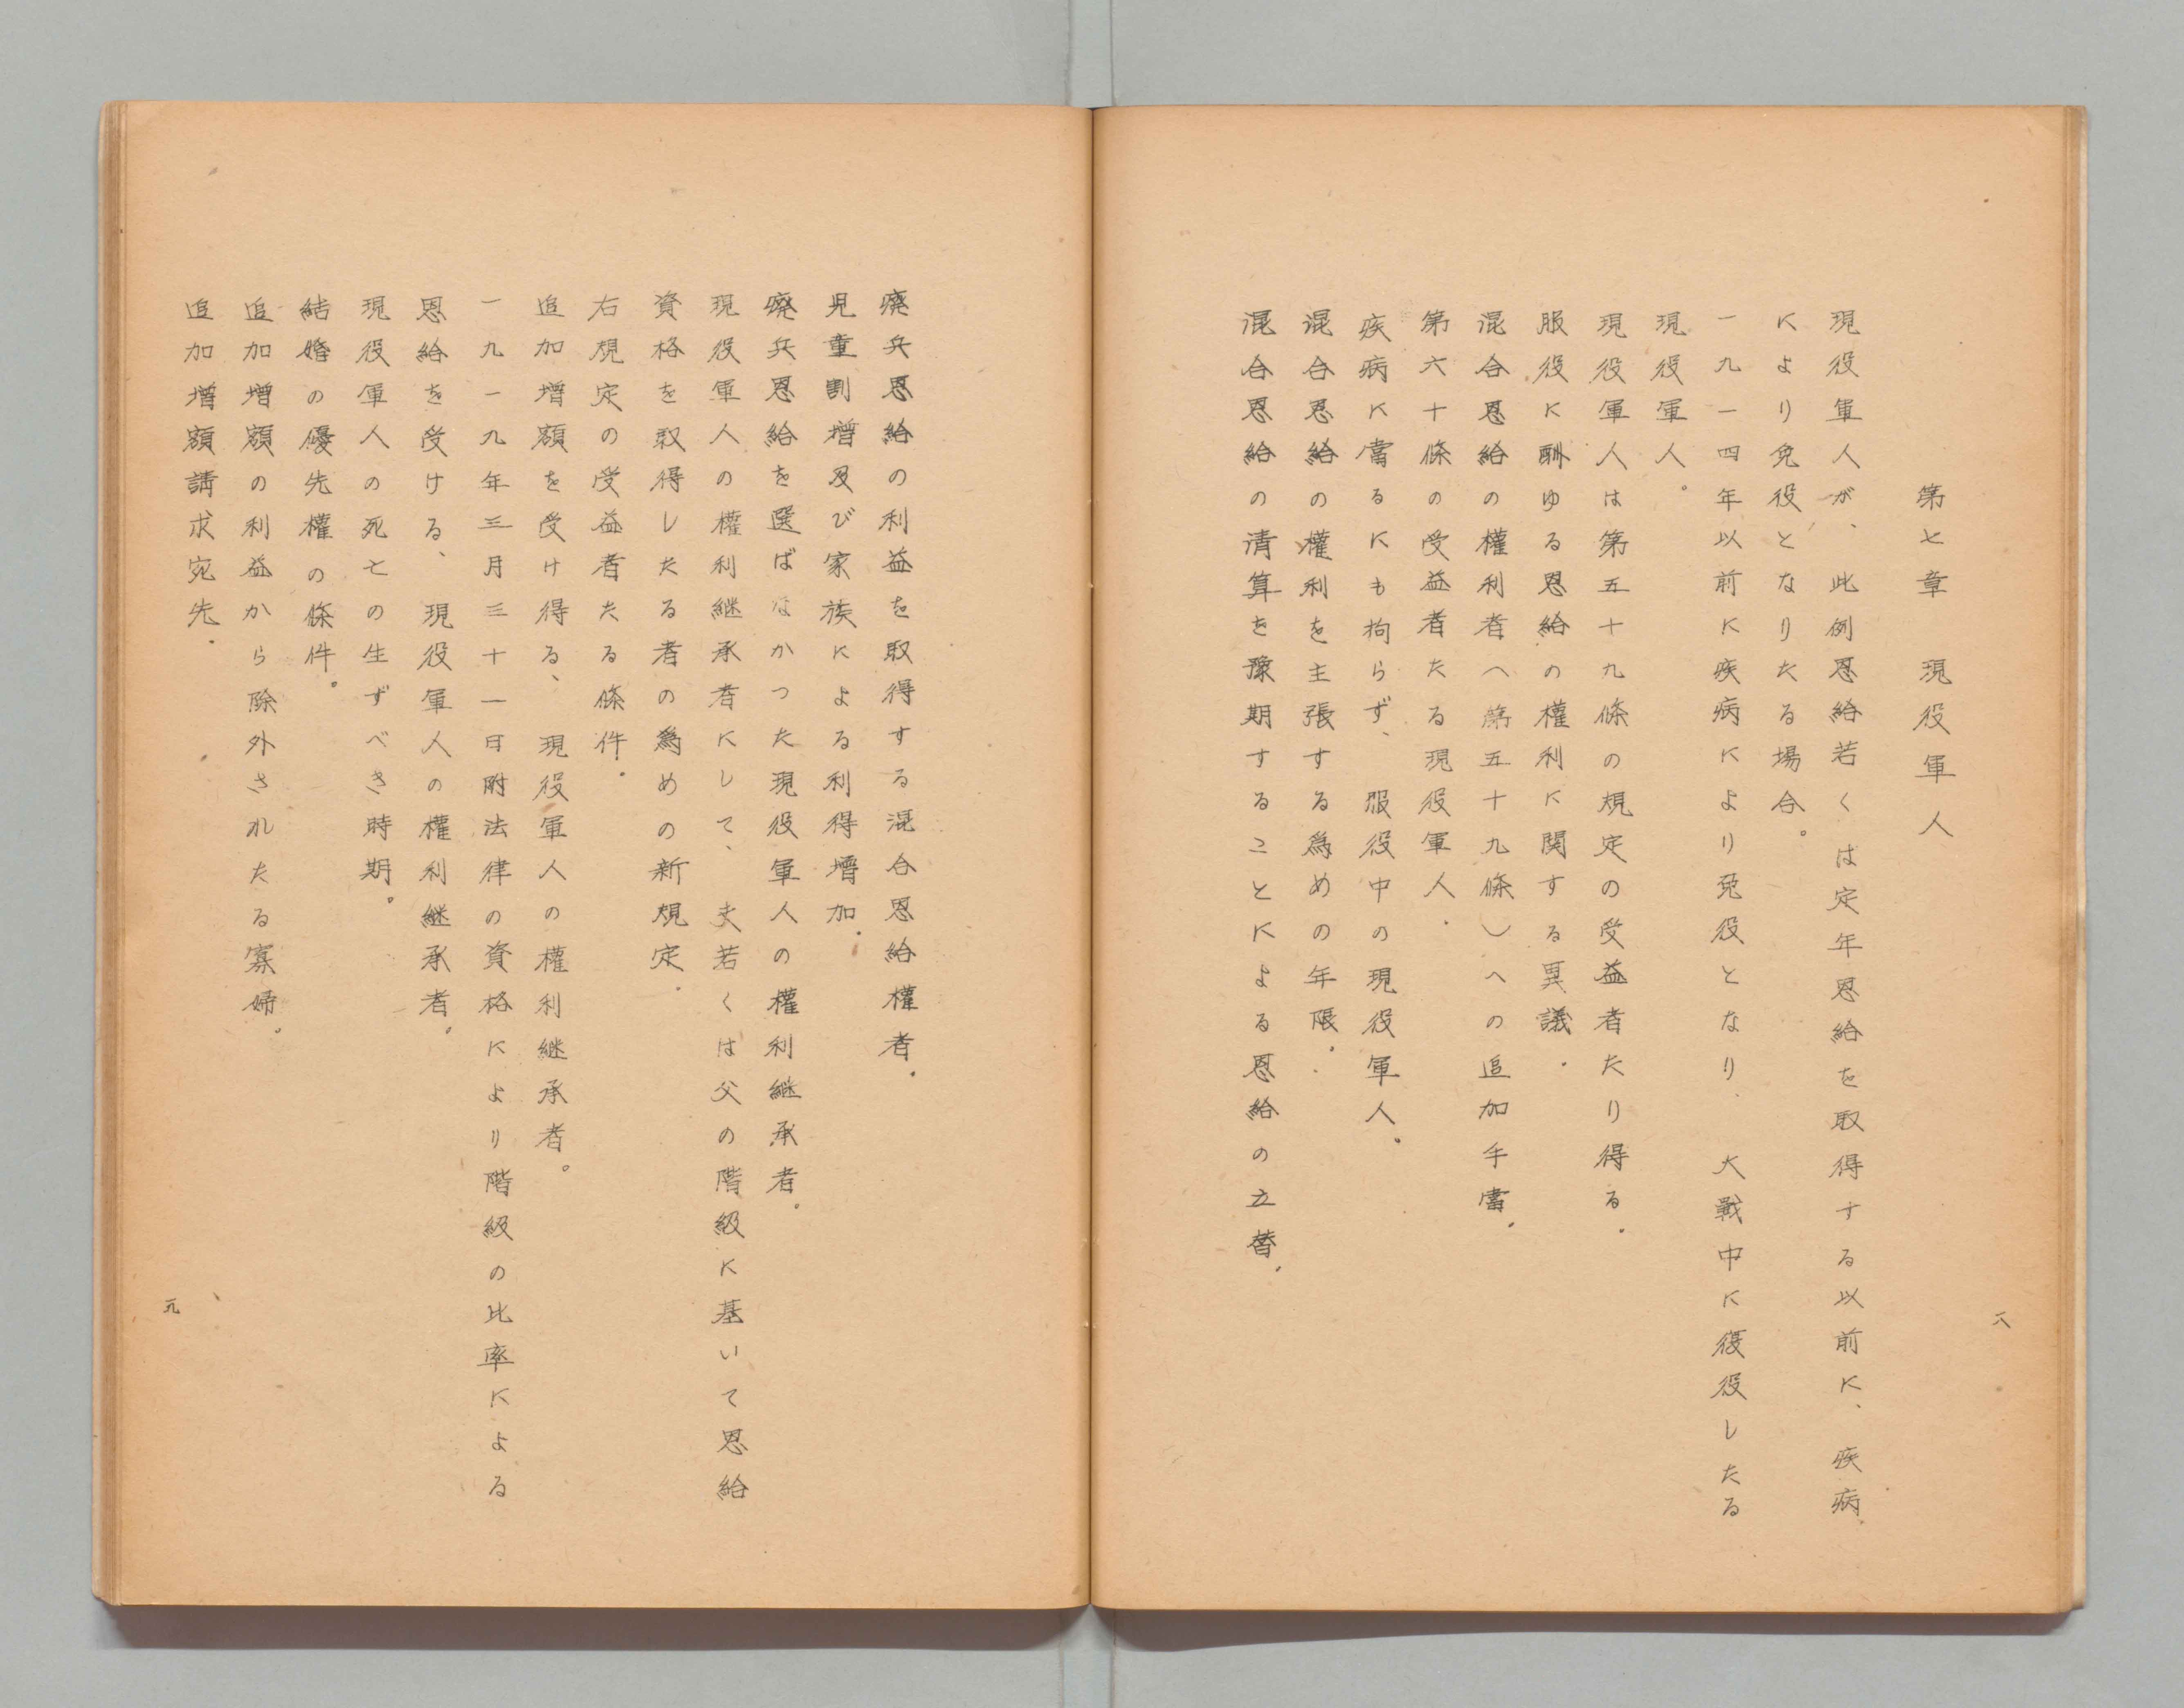 第七章　現役軍人
現役軍人が、此例恩給若くは定年恩給を取得する以前に、疾病
により免役となりたる場合。
一九一四年以前に疾病により免役となり、大戰中に復役したる
現役軍人。
現役軍人は第五十九條の規定の受益者たり得る。
服役に酬ゆる恩給の權利に関する異議．
混合恩給の權利者へ（第五十九條）への追加手當．
第六十條の受益者たる現役軍人．
疾病に當るにも拘らず、服役中の現役軍人。
混合恩給の權利を主張する為めの年限．
混合恩給の清算を豫期することによる恩給の立替．
八
癈兵恩給の利益を取得する混合恩給權者．
児童割増及び家族による利得増加．
癈兵恩給を選ばなかつた現役軍人の權利継承者．
現役軍人の權利継承者にして、夫若くは父の階級に基いて恩給
資格を取得したる者の為めの新規定．
右規定の受益者たる條件．
追加増額を受け得る、現役軍人の權利継承者。
一九一九年三月三十一日附法律の資格により階級の比率による
恩給を受ける、現役軍人の權利継承者．
現役軍人の死との生ずべき時期。
結婚の優先權の條件。
追加増額の利益から除外されたる寡婦．
追加増額請求宛先．
九